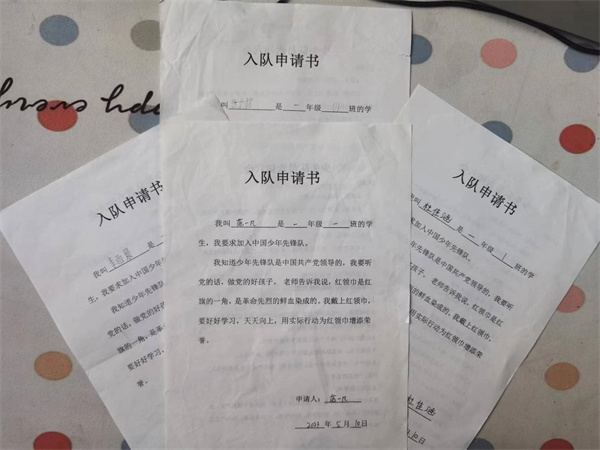 入队申请书
我叫 是 一 年级 班的学
入队申请书
我叫 是 一 年级 一 班的学
生,我要求加入中国少年先锋队。
我知道少年先锋队是中国共产党领导的,我要听
党的话,做党的好孩子。 老师告诉我说,红领巾是红
旗的一角,是革命先烈的鲜血染成的。我戴上红领巾,
要好好学习,天天向上,用实际行动为红领巾增添荣
誉。
申请人:
年 5 月 日
入队申请书
我叫 是
生,我要求加入中国少年
我知道少年先锋
党的话,做党的好
旗的一角,是革
要好好学习,
誉。
入队申请书
叫 杜佳涵 是 一 年级 1 班的学
求加入中国少年先锋队。
年先锋队是中国共产党领导的,我要听
孩子。 老师告诉我说,红领巾是红
烈的鲜血染成的。我戴上红领巾,
上,用实际行动为红领巾增添荣
杜佳涵
日